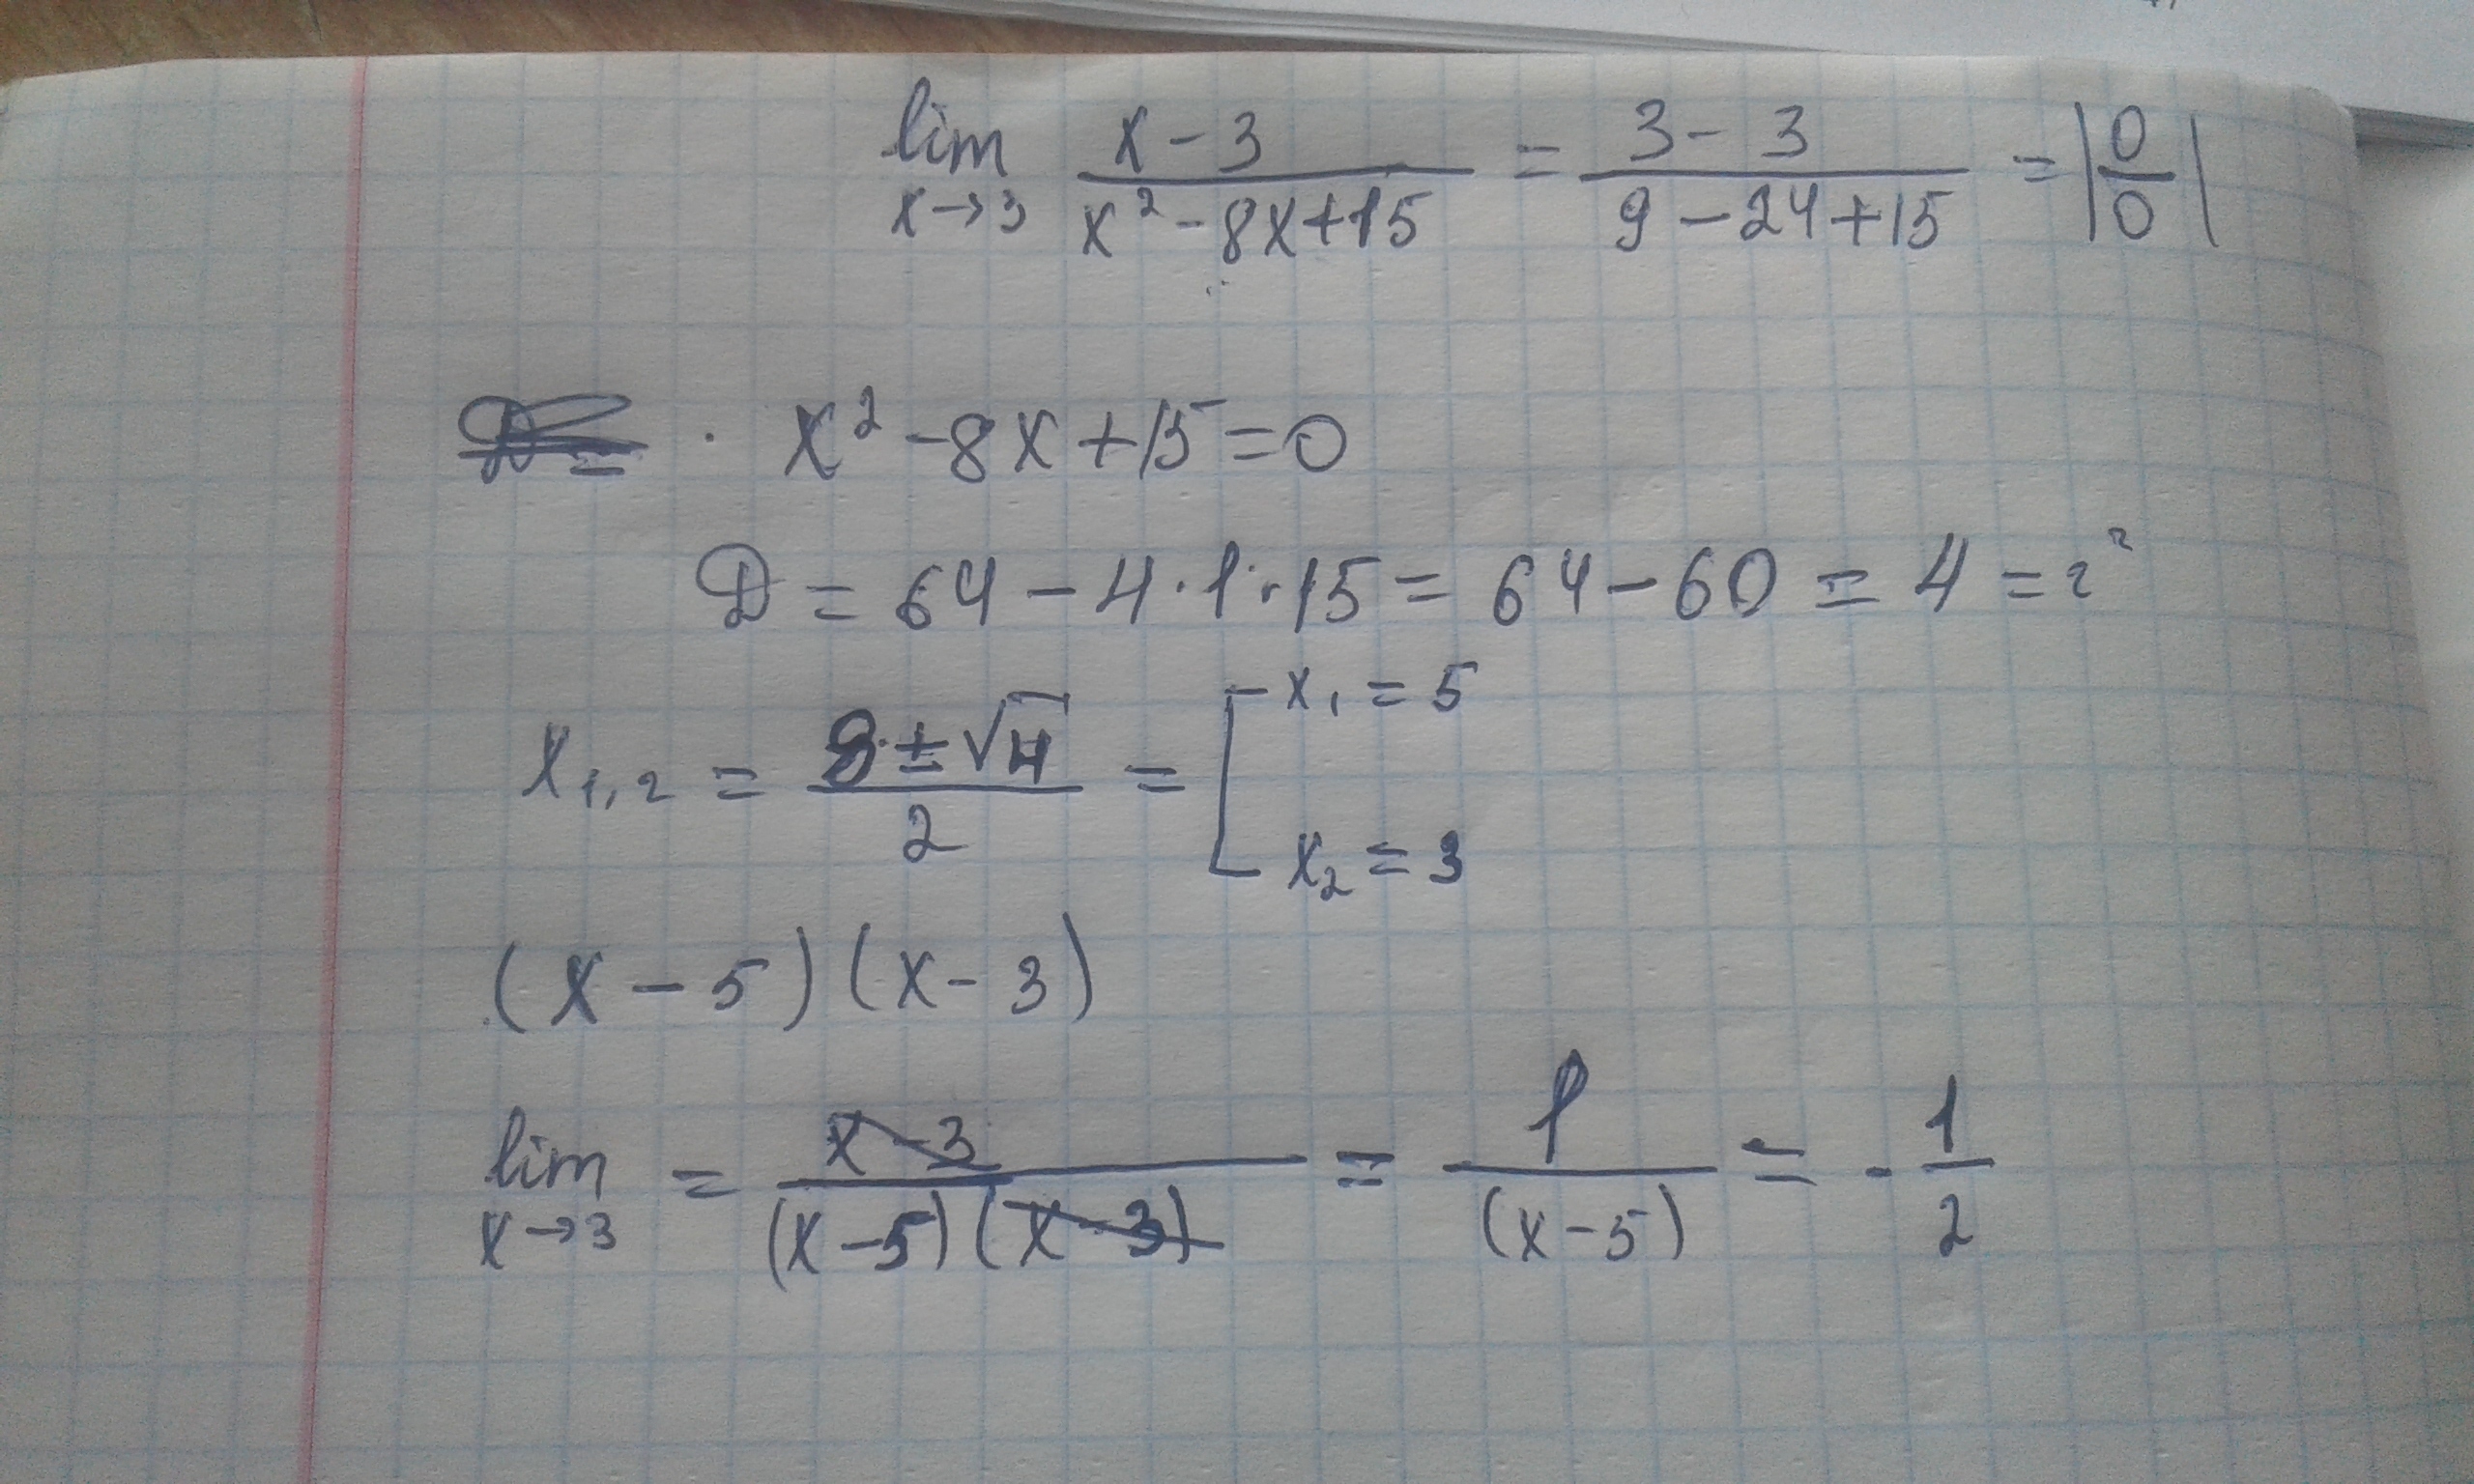 lim x→3 (x-3)/(x²-8x+15) = (3-3)/(9-24+15) = |0/0|
x²-8x+15=0
D = 64-4·1·15 = 64-60 = 4 = 2²
x₁,₂ = (8±√4)/2 = [ x₁ = 5
x₂ = 3
(x-5)(x-3)
lim x→3 = (x-3)/((x-5)(x-3)) = 1/(x-5) = -1/2